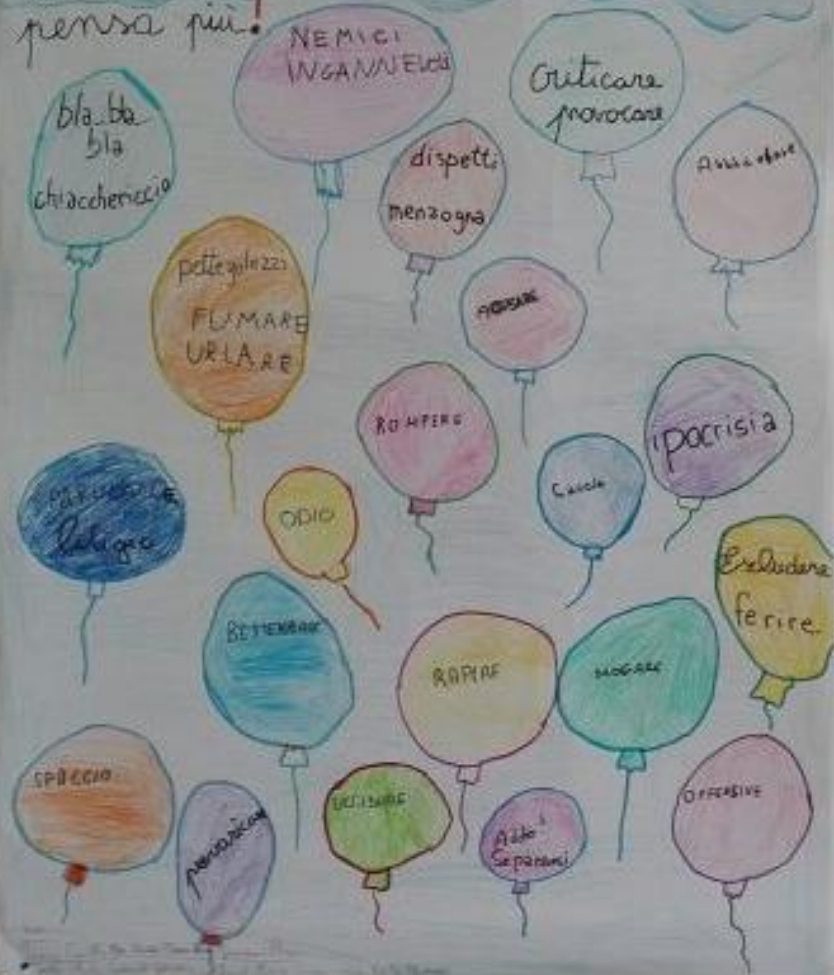 pensa più!
NEMICI
INGANNEVOLI
Criticare
provocare
bla bla
bla
chiacchericcio
dispetti
menzogna
pettegolezzi
FUMARE
URLARE
ROMPERE
ipocrisia
ODIO
Litigare
Escludere
ferire
BESTEMMIARE
RAPIRE
NEGARE
SPACCIO
prevaricare
UCCIDERE
Addio!
Separarsi
OFFENSIVE